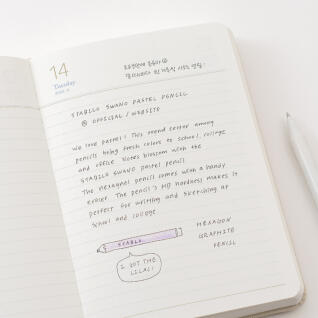 14
Tuesday
STABILO SWANO PASTEL PENCIL
@ OFFICIAL / WEBSITE
We love pastel! This trend color among
pencils bring fresh colors to school, college
and office. Notes blossom with the
STABILO SWANO pastel pencil.
The hexagonal pencil comes with a handy
eraser. The pencil's HB hardness makes it
perfect for writing and sketching at
school and college
STABILO
I GOT THE
LILAC!
HEXAGON
GRAPHITE
PENCIL